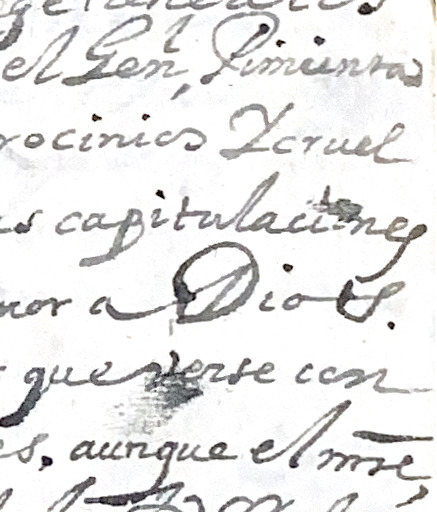 el Gen,l Pimienta
rocinios Y cruel
as capitulaciones
mor a Dios.
que verse con
es, aunque el mre,